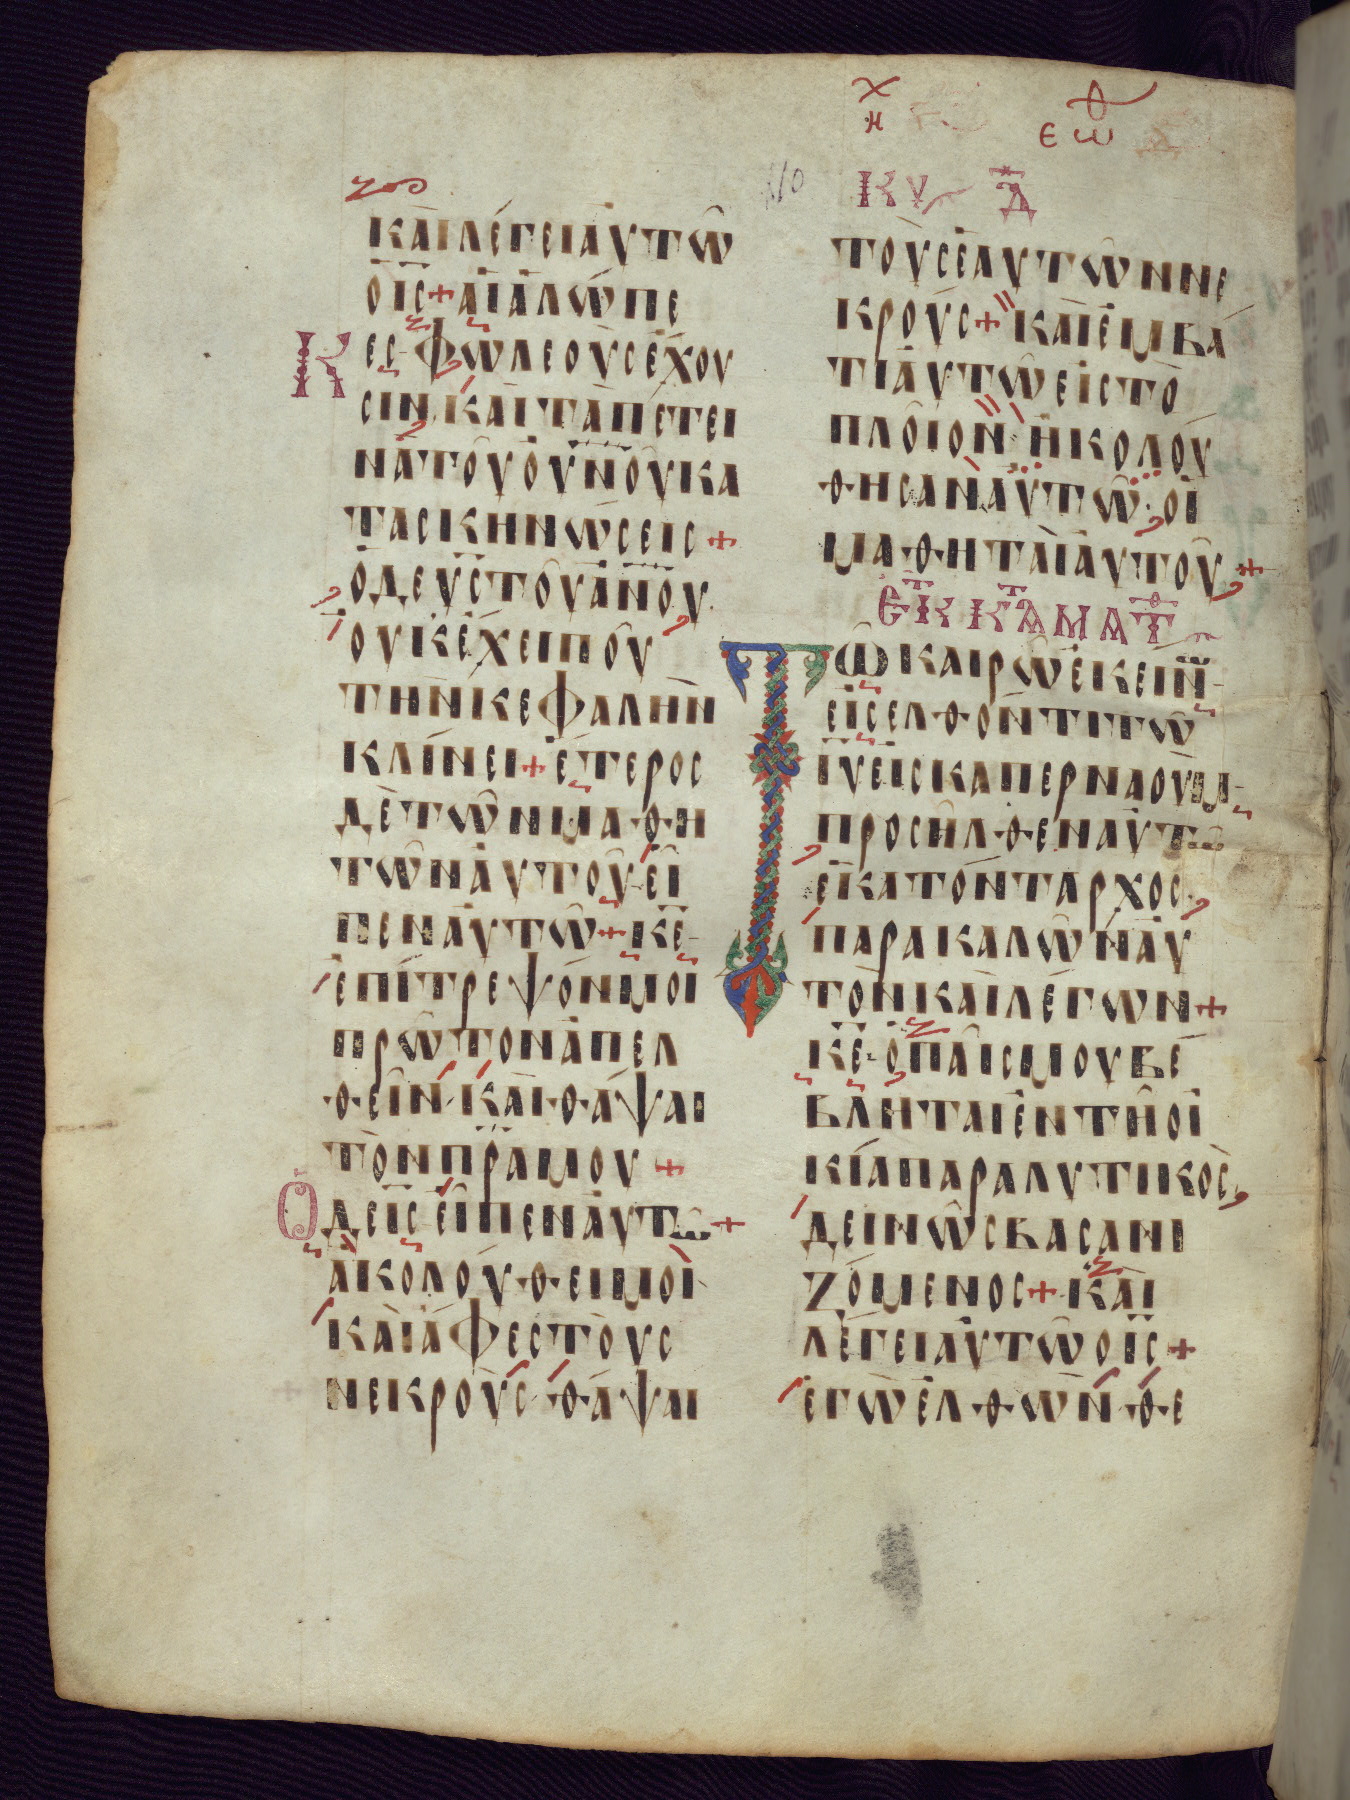 ΚΑΙΛΕΓΕΙΑΥΤΩ
ΟΙΣ+ΑΙΑΛΩΠΕ
ΚΕΣ ΦΩΛΕΟΥΣΕΧΟΥ
ΣΙΝ ΚΑΙΤΑΠΕΤΕΙ
ΝΑΤΟΥΟΥΝΟΥΚΑ
ΤΑΣΚΗΝΩΣΕΙΣ+
ΟΔΕΥΣΤΟΥΑΝΟΥ
ΟΥΚΕΧΕΙΠΟΥ
ΤΗΝΚΕΦΑΛΗΝ
ΚΛΙΝΕΙ+ΕΤΕΡΟΣ
ΔΕΤΩΝΜΑΘΗ
ΤΩΝΑΥΤΟΥΕΙ
ΠΕΝΑΥΤΩ+ΚΕ
ΕΠΙΤΡΕΨΟΝΜΟΙ
ΠΡΩΤΟΝΑΠΕΛ
ΘΕΙΝ ΚΑΙΘΑΨΑΙ
ΤΟΝΠΡΑΜΟΥ+
ΟΔΕΙΣΕΙΠΕΝΑΥΤΩ+
ΑΚΟΛΟΥΘΕΙΜΟΙ
ΚΑΙΑΦΕΣΤΟΥΣ
ΝΕΚΡΟΥΣ ΘΑΨΑΙ
ΚΥ Δ
ΤΟΥΣΕΑΥΤΩΝΝΕ
ΚΡΟΥΣ+ΚΑΙΕΜΒΑ
ΤΙΑΥΤΩΕΙΣΤΟ
ΠΛΟΙΟΝ ΗΚΟΛΟΥ
ΘΗΣΑΝΑΥΤΩ ΟΙ
ΜΑΘΗΤΑΙΑΥΤΟΥ+
ΕΚ Κ ΜΑΤ
ΤΩΚΑΙΡΩΕΚΕΙΝ
ΕΙΣΕΛΘΟΝΤΙΤΩ
ΙΥΕΙΣΚΑΠΕΡΝΑΟΥΜ
ΠΡΟΣΗΛΘΕΝΑΥΤΩ
ΕΚΑΤΟΝΤΑΡΧΟΣ
ΠΑΡΑΚΑΛΩΝΑΥ
ΤΟΝΚΑΙΛΕΓΩΝ+
ΚΕ ΟΠΑΙΣΜΟΥΒΕ
ΒΛΗΤΑΙΕΝΤΗΟΙ
ΚΙΑΠΑΡΑΛΥΤΙΚΟΣ
ΔΕΙΝΩΣΒΑΣΑΝΙ
ΖΟΜΕΝΟΣ+ΚΑΙ
ΛΕΓΕΙΑΥΤΩΟΙΣ+
ΕΓΩΕΛΘΩΝ ΘΕ